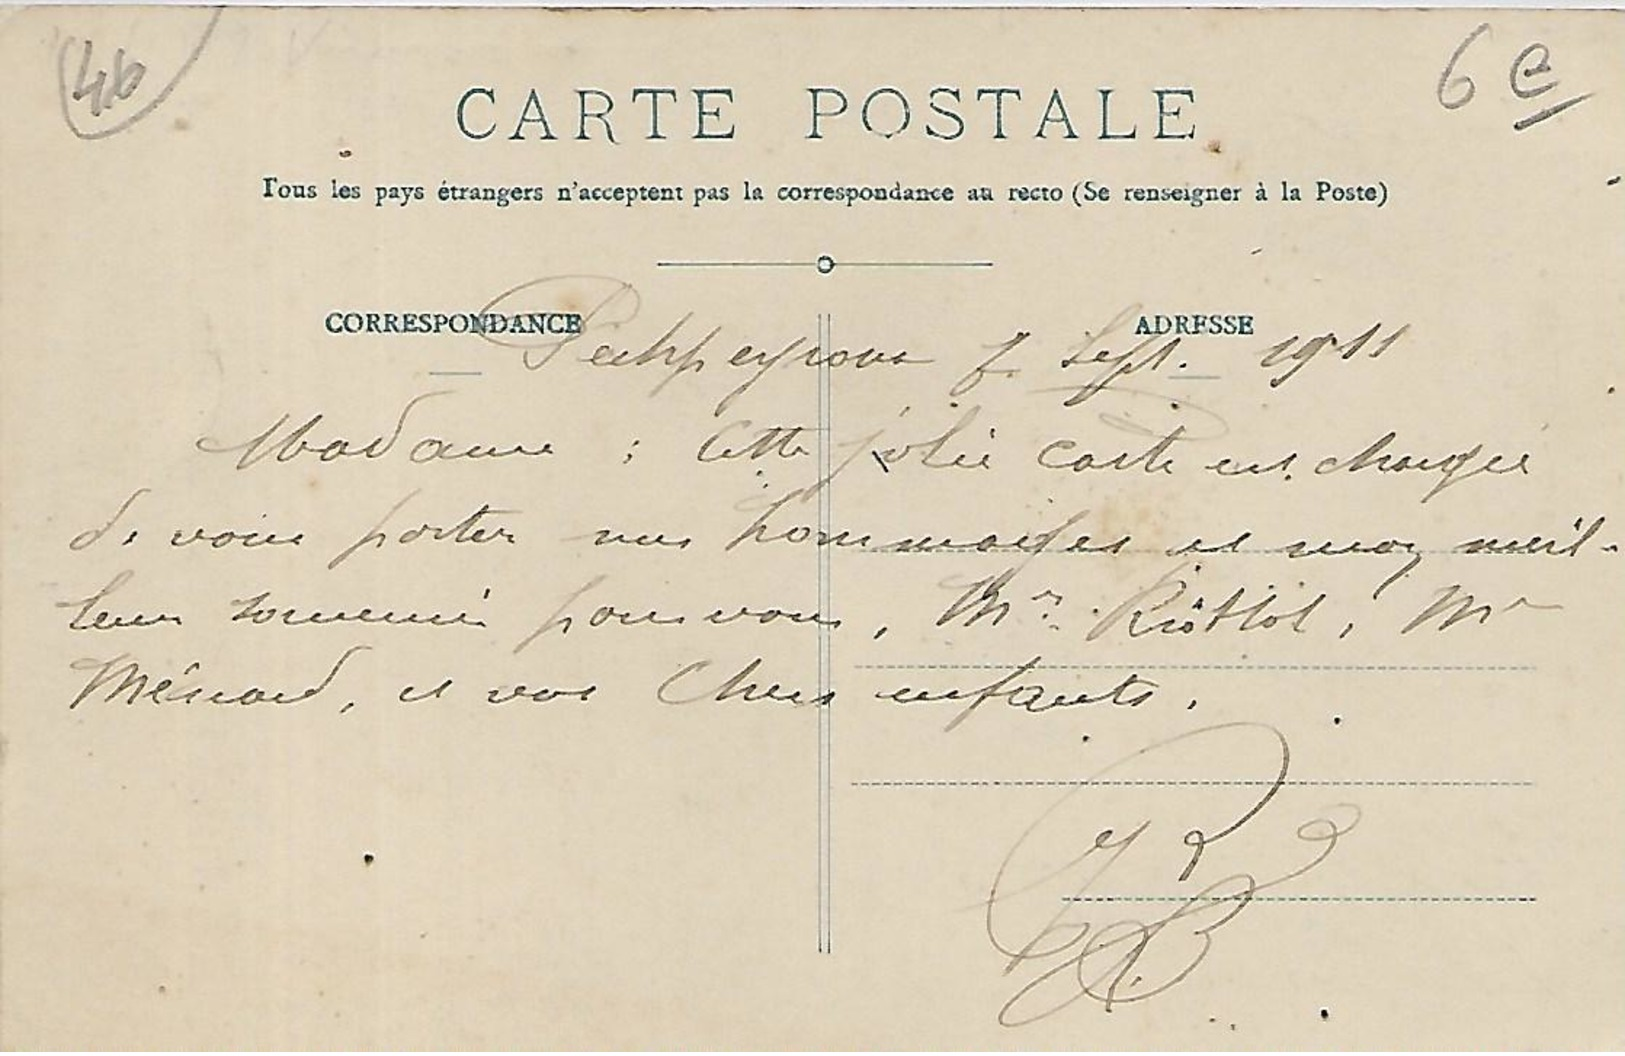 46
6 e
CARTE POSTALE
Tous les pays étrangers n'acceptent pas la correspondance au recto (Se renseigner à la Poste)
CORRESPONDANCE
ADRESSE
Pechpeyroux 7 Sept. 1911
Madame : Cette jolie carte est chargée
de vous porter mes hommages et mon meil-
leur souvenir pour vous, Mr
Mr
Ménard, et vos Chers enfants.